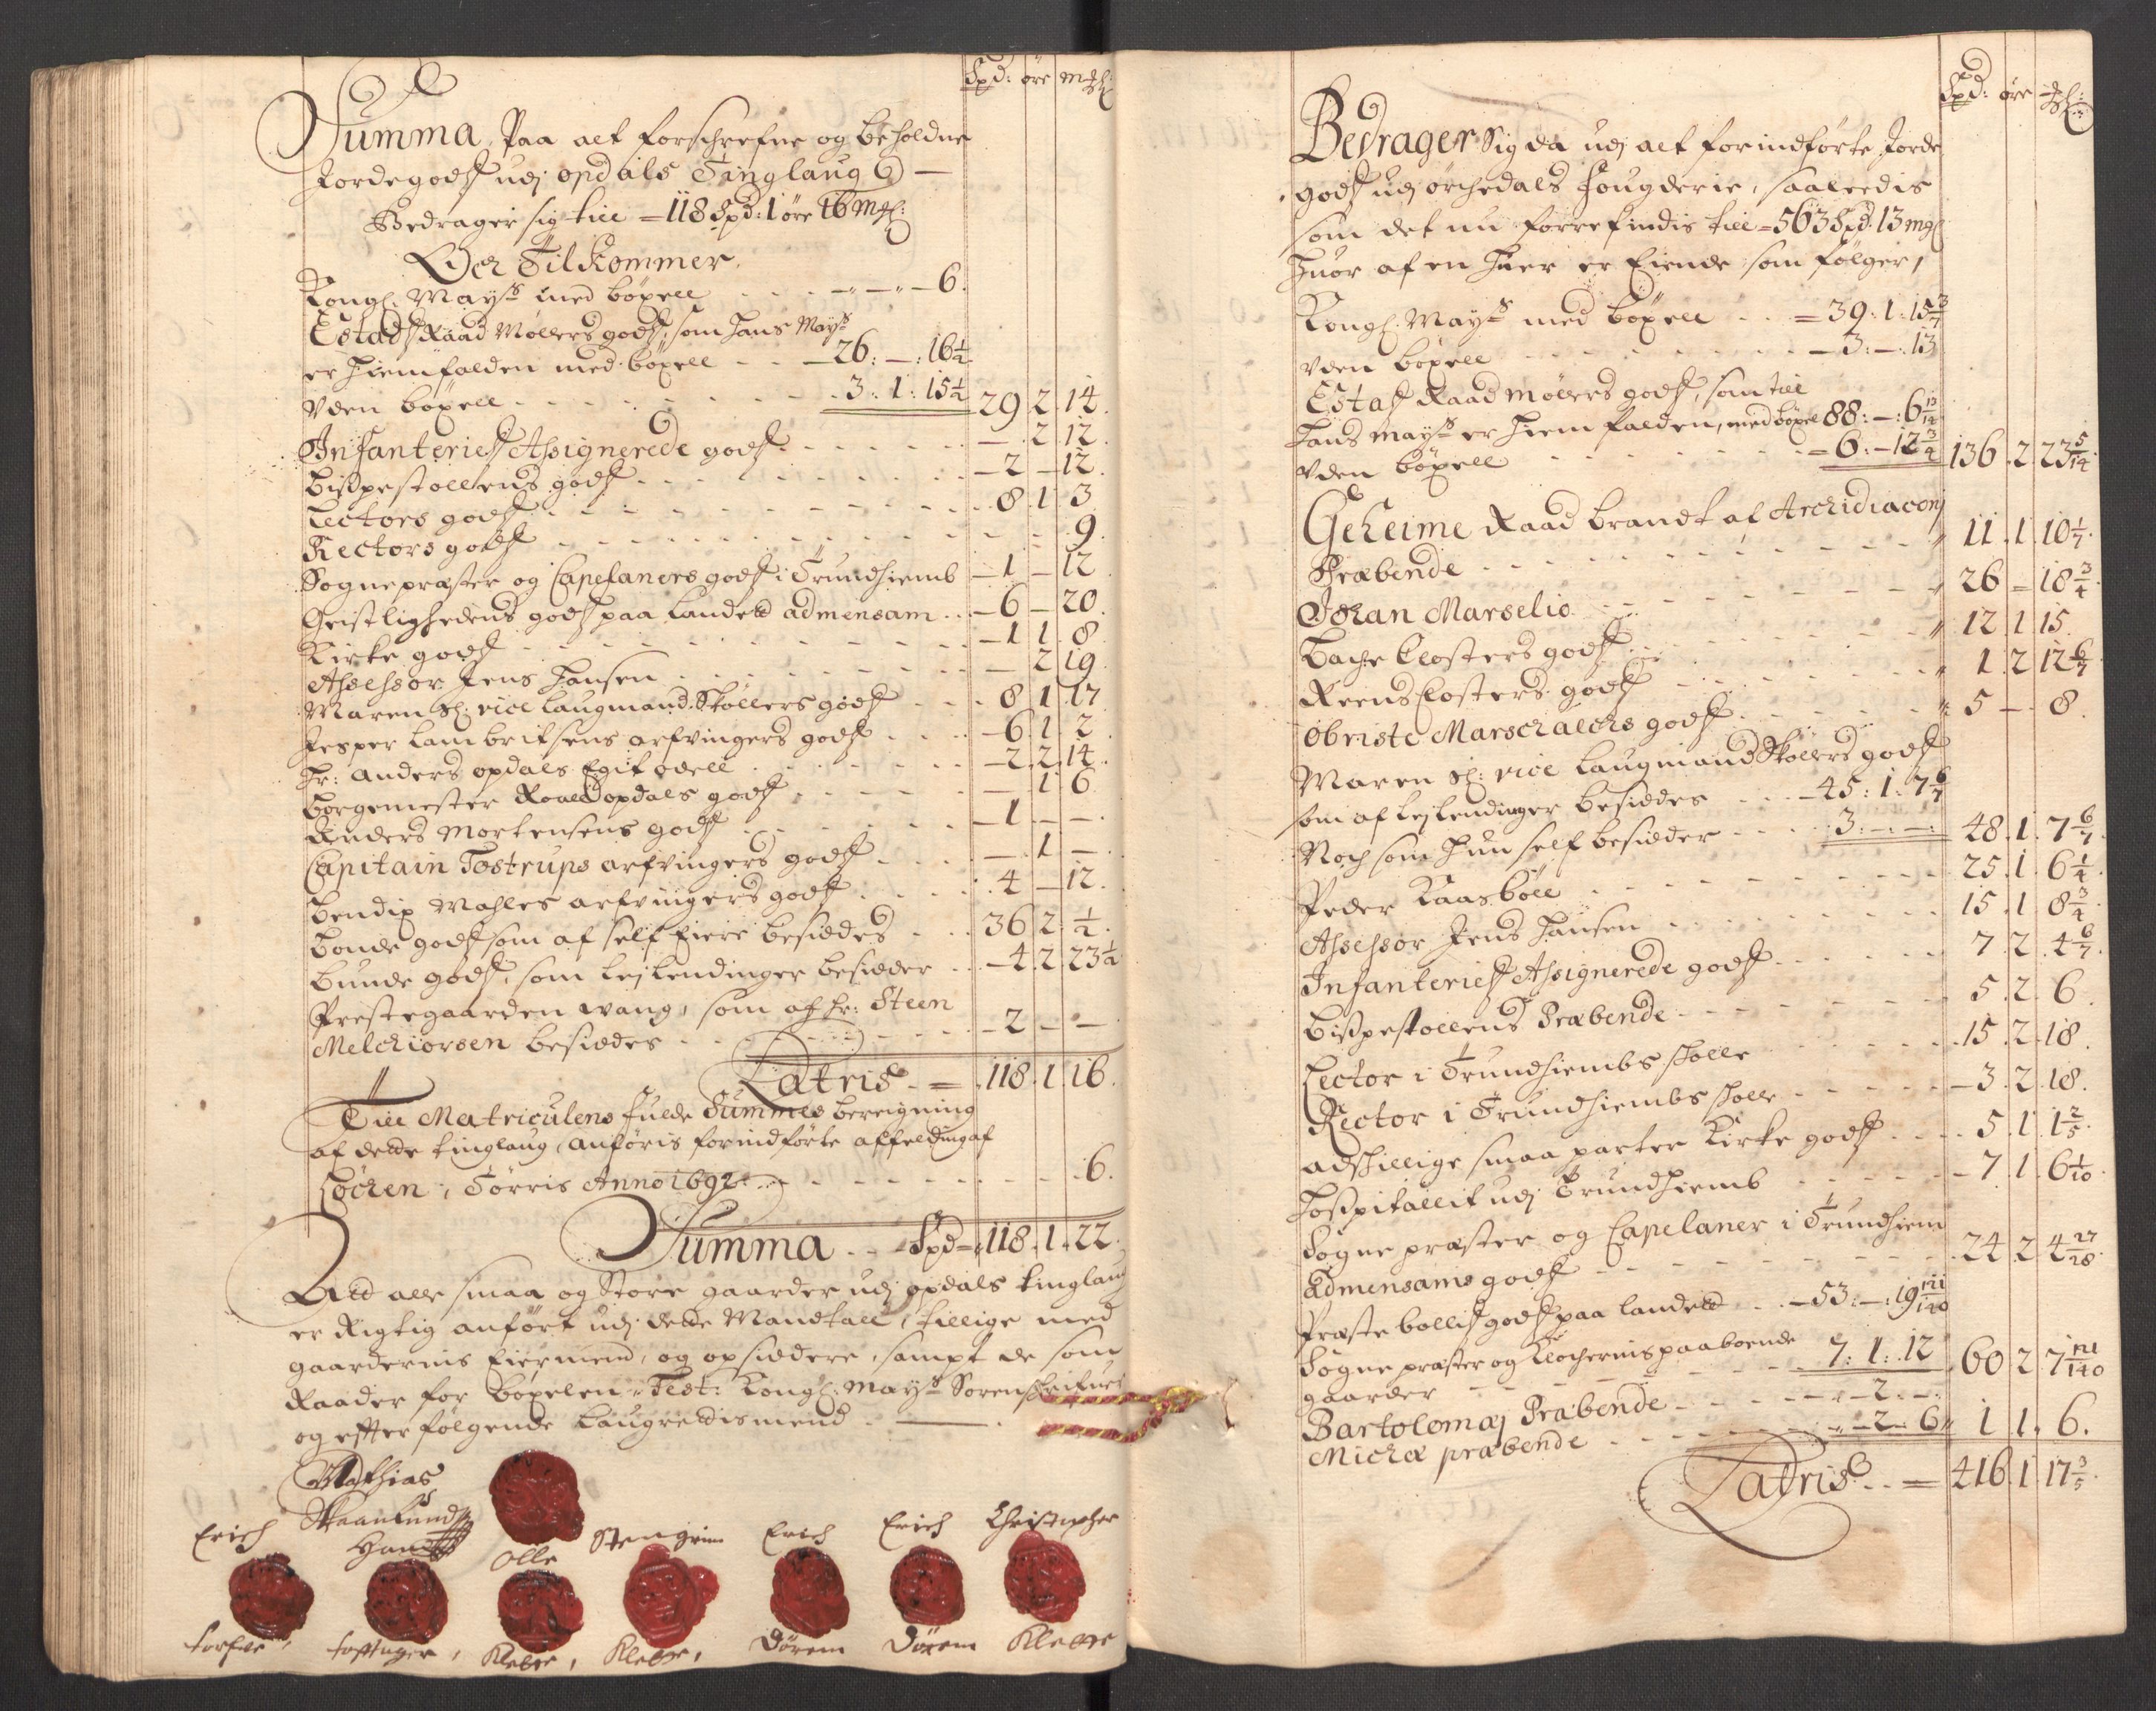 Spd: öre mgl:
Summa, Paa alt forschrefne og beholdne
Jordegods udj opdals Tinglaug
Bedrager sig till – 118 Spd: 1 öre 16 mgl:
Der Tilkommer.
Kongl: Mayts med böxell - - - – „ – „ – 6.
Estads Raad Möllers gods, som hans Mayts
er hiemfalden med böxell - - – 26: – : 16 1/4
Uden böxell - - - - - - - 3: 1: 15 1/4 29 2 14.
Infanteriets Assignerede gods - - - - - – . 2 12.
Bispestollens gods - - - - - - – 2 – 12.
Lectors gods - - - - - - - 8 1 3.
Rectors gods - - - - - - - - – – 9.
Sognepræster og Capelaners gods i Trundhiemb – 1 – 12
Geistlighedens gods paa Landet ad mensam. . – 6 – 20.
Kirke gods - - - - - - – 1 1. 8.
Assessor Jens Hansen - - - - - – 2 19.
Maren Sl: vice Laugmand Stollers gods - - 8 1 17
Jesper Lambritsens arfvingers gods - - – 6. 1. 2.
Hr: Anders opdals Egit odell - - - – 2. 2. 14.
Borgemester Roald opdals gods - - - – 1 6.
Anders Mortensens gods - - - – 1 – –
Capitain Tostrups arfvingers gods - - – . 1 –
Bendix Mahles arfvingers gods - - . 4 – 12.
Bonde gods som af self Eiere besiddes - - 36 2 1/2.
Bunde gods, som lejlendinger besidder . . – 4. 2 23 1/2
Prestegaarden wang, som af hr: Steen
Melchiorsen besiddes - - - - - – 2 – –
Latris - = 118. 1. 16.
Till Matriculens fulde Summes bereigning
af dette tinglaug, anföris forindförte affelding af
Löchen, Törris Anno 1692 - - - - - - . 6.
Summa - - Spd – 118. 1. 22.
At alle smaa og Store gaarder udj opdals tinglaug
er Rigtig anfört udj dette Mandtall, tillige med
gaardernis Eiermend, og opsiddere, sampt de som
Raader for böxelen, Test: Kongl: Mayts Sorenskrifver
og effterfölgende Laugrettismend. —
Mathias
Skaanlund
Hand
Erich
Olle
Stengrim
Erich
Erich
Christopher
torfve,
toftager,
Klefve,
Klefve,
Dörem
Dörem
Klefve
Spd: öre gl:
Bedrager Sig da udj alt forindförte Jorde
gods udj örchedals Fougderie, saaledis
som det nu forrefindis till = 563 Spd. 13 mgl
huor af en huer er Eiende som fölger,
Kongl: Mayts med böxell - - = 39: 1: 15 3/7
Uden böxell - - - - - - – 3: – : 13
Estats Raad Möllers gods, som till
hans mayts er hiemfalden, med böxel 88: – : 6 13/14
Uden böxell - - - - - - – 6: – 12 3/4 136. 2 23 5/14
Geheime Raad Brandt af Archidiaconj
Præbende - - - - - - - „ 11. 1. 10 1/7.
Johan Marselio - - - - - - „ 26 – 18 3/4.
Bache Closters gods - - - - - „ 12. 1 15.
Reens Closters gods - - - - - „ 1. 2 12 6/7.
Obriste Marschalchs gods - - - „ 5 – 8.
Maren Sl: vice Laugmand Stollers gods
som af lejlendinger besiddes - - – 45: 1: 7 6/7
Noch som hun self besidder - - - 3: – : – : 48. 1 7 6/7.
Peder Kaasböll - - - - - - 25. 1. 6 1/4.
Assessor Jens Hansen - - - - - 15. 1 8 3/4.
Infanteriets Assignerede gods - - - 7. 2. 4 6/7.
Bispestollens Præbende - - - - 5. 2. 6.
Lector i Trundhiembs skolle - - - 15. 2. 18.
Rector i Trundhiembs skolle - - - – 3. 2. 18.
adskillige smaa parter Kirke gods - - - 5. 1. 1 2/5.
Hospitallit udj Trundhiemb - - - – 7. 1. 6 1/10.
Sogne præster og Capelaner i Trundhiem
Admensams gods - - - - - - 24 2 4 27/28.
Præstebollis gods paa landet - - – 53: – : 19 121/140
Sogne præster og Klochernis paaboende
gaarder - - - - - - 7: 1: 12 60 2. 7 121/140
Bartolomæj Præbende - - - - „ – 2: – :
Michæ præbende - - - - - „ – 2 – 6 „ 1 1. 6.
Latris - - = 416. 1 17 3/5.